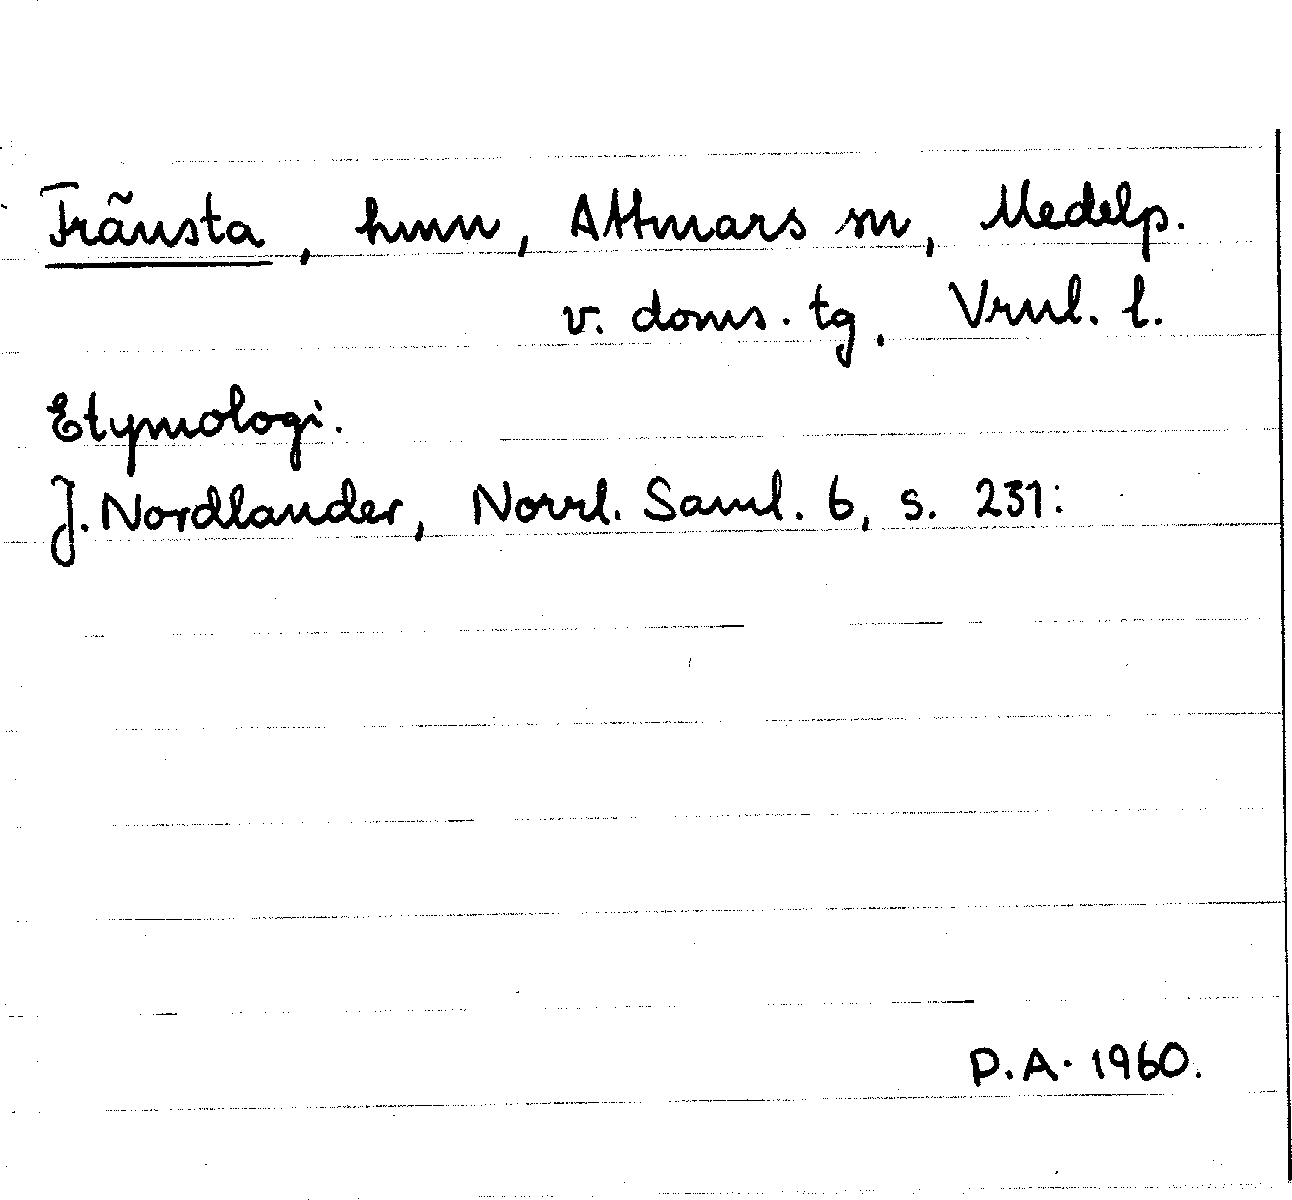 Tränsta, hmn, Attmars sn, Medelp.
v. doms. tg. Vrnl. l.
Etymologi.
J. Nordlander, Norrl. Saml. 6, s. 231:
P.A. 1960.